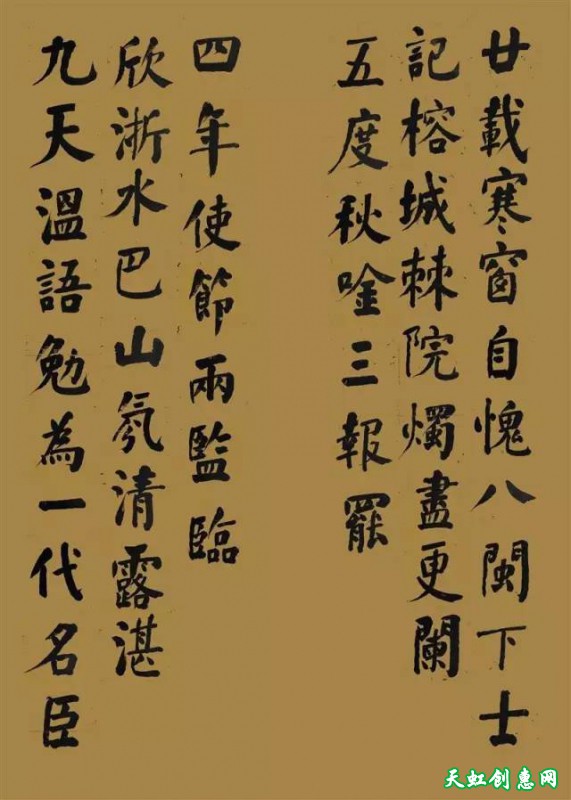 廿載寒窗自愧八閩下士
記榕城棘院燭盡更闌
五度秋唫三報罷
九天溫語勉為一代名臣
欣浙水巴山氛清露湛
四年使節兩監臨
天虹创惠网